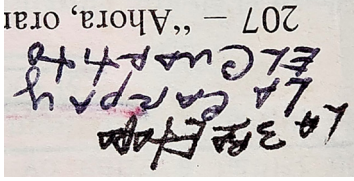 LA 3RA Etapa
LA CARPA Y
EL CUARTO
207 – “Ahora, orar